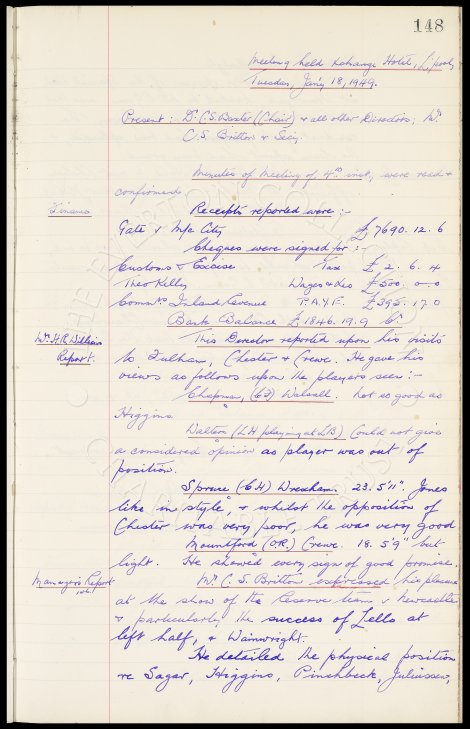 148
Meeting held Exchange Hotel, L'pool,
Tuesday, Jan'y 18, 1949.
Present: Dr. C.S. Baxter (Chair) & all other Directors; Mr.
C.S. Britton & Secy.
Minutes of Meeting of 4th inst, were read &
confirmed
Finance
Receipts reported were :-
Gate v M/c City £7690. 12. 6
Cheques were signed for :-
Customs & Excise Tax £2. 6. 4
Theo Kelly Wages & £500. 0. 0
Commrs. Inland Revenue P.A.Y.E. £395. 17. 0
Bank Balance £1846. 19. 9 Cr.
Mr. H.R. Williams
Report.
This Director reported upon his visits
to Fulham, Chester & Crewe. He gave his
views as follows upon the players seen :-
Chapman, (CF) Walsall. Not as good as
Higgins
Walton (LH playing at LB) Could not give
a considered opinion as player was out of
position.
Spruce (CH) Wrexham. 23. 5'11". "Jones
like in style", & whilst the opposition of
Chester was very poor, he was very good
Mountford (OR.) Crewe. 18. 5'9" but
light. He showed every sign of good promise.
Manager's Report
Mr. C.S. Britton expressed his pleasure
at the show of the Reserve team v Newcastle
& particularly the success of Lello at
left half, & Wainwright.
He detailed the physical position
re Sagar, Higgins, Pinchbeck, Juliussen,